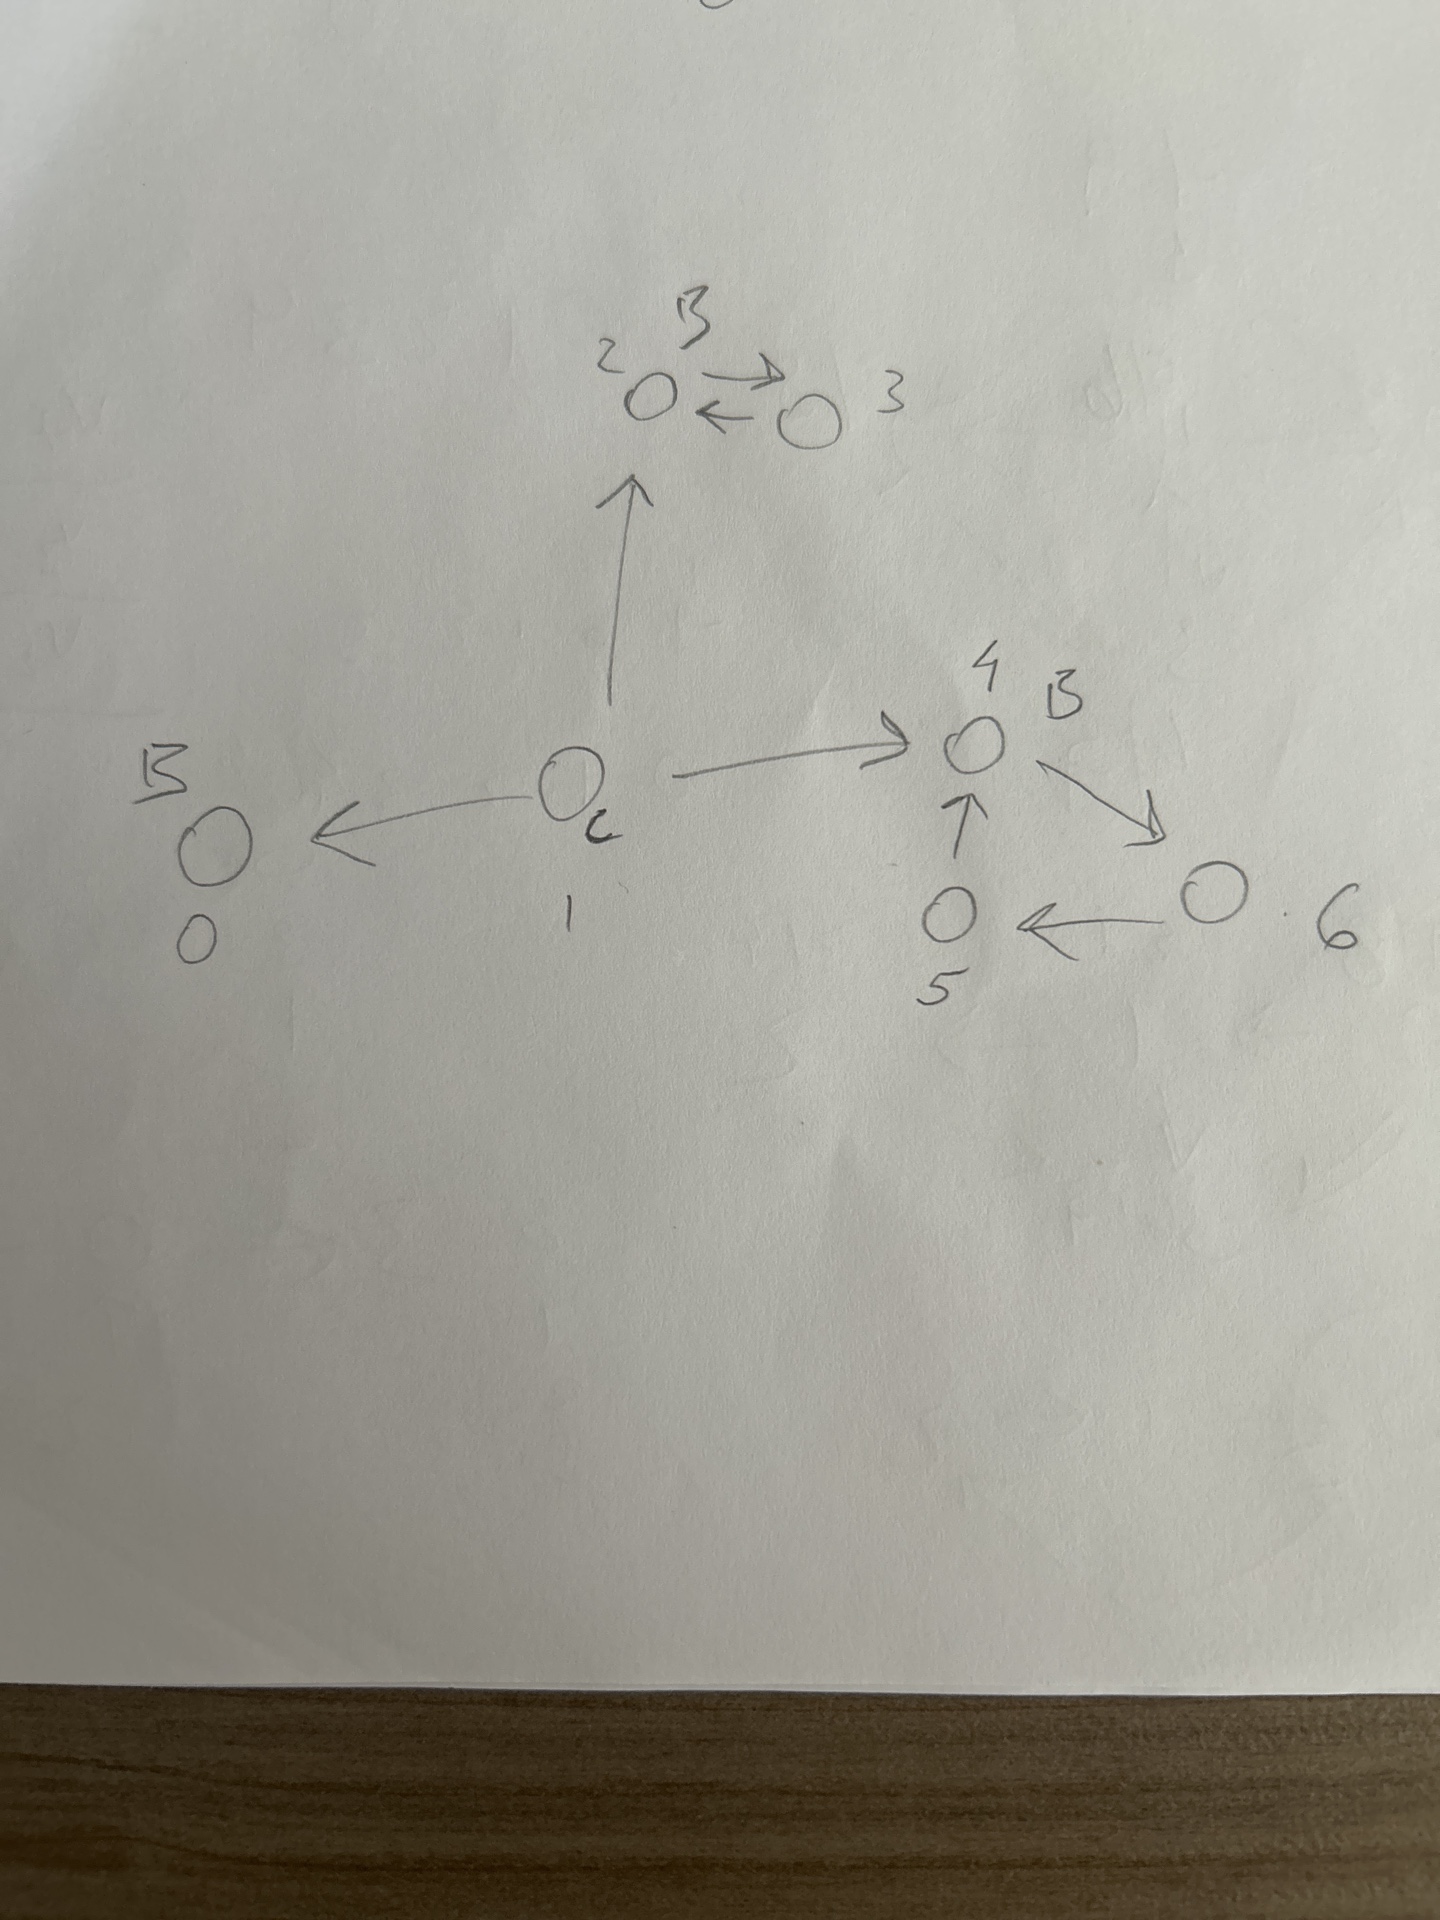 B
2 3
4 B
B
C
0 1
6
5